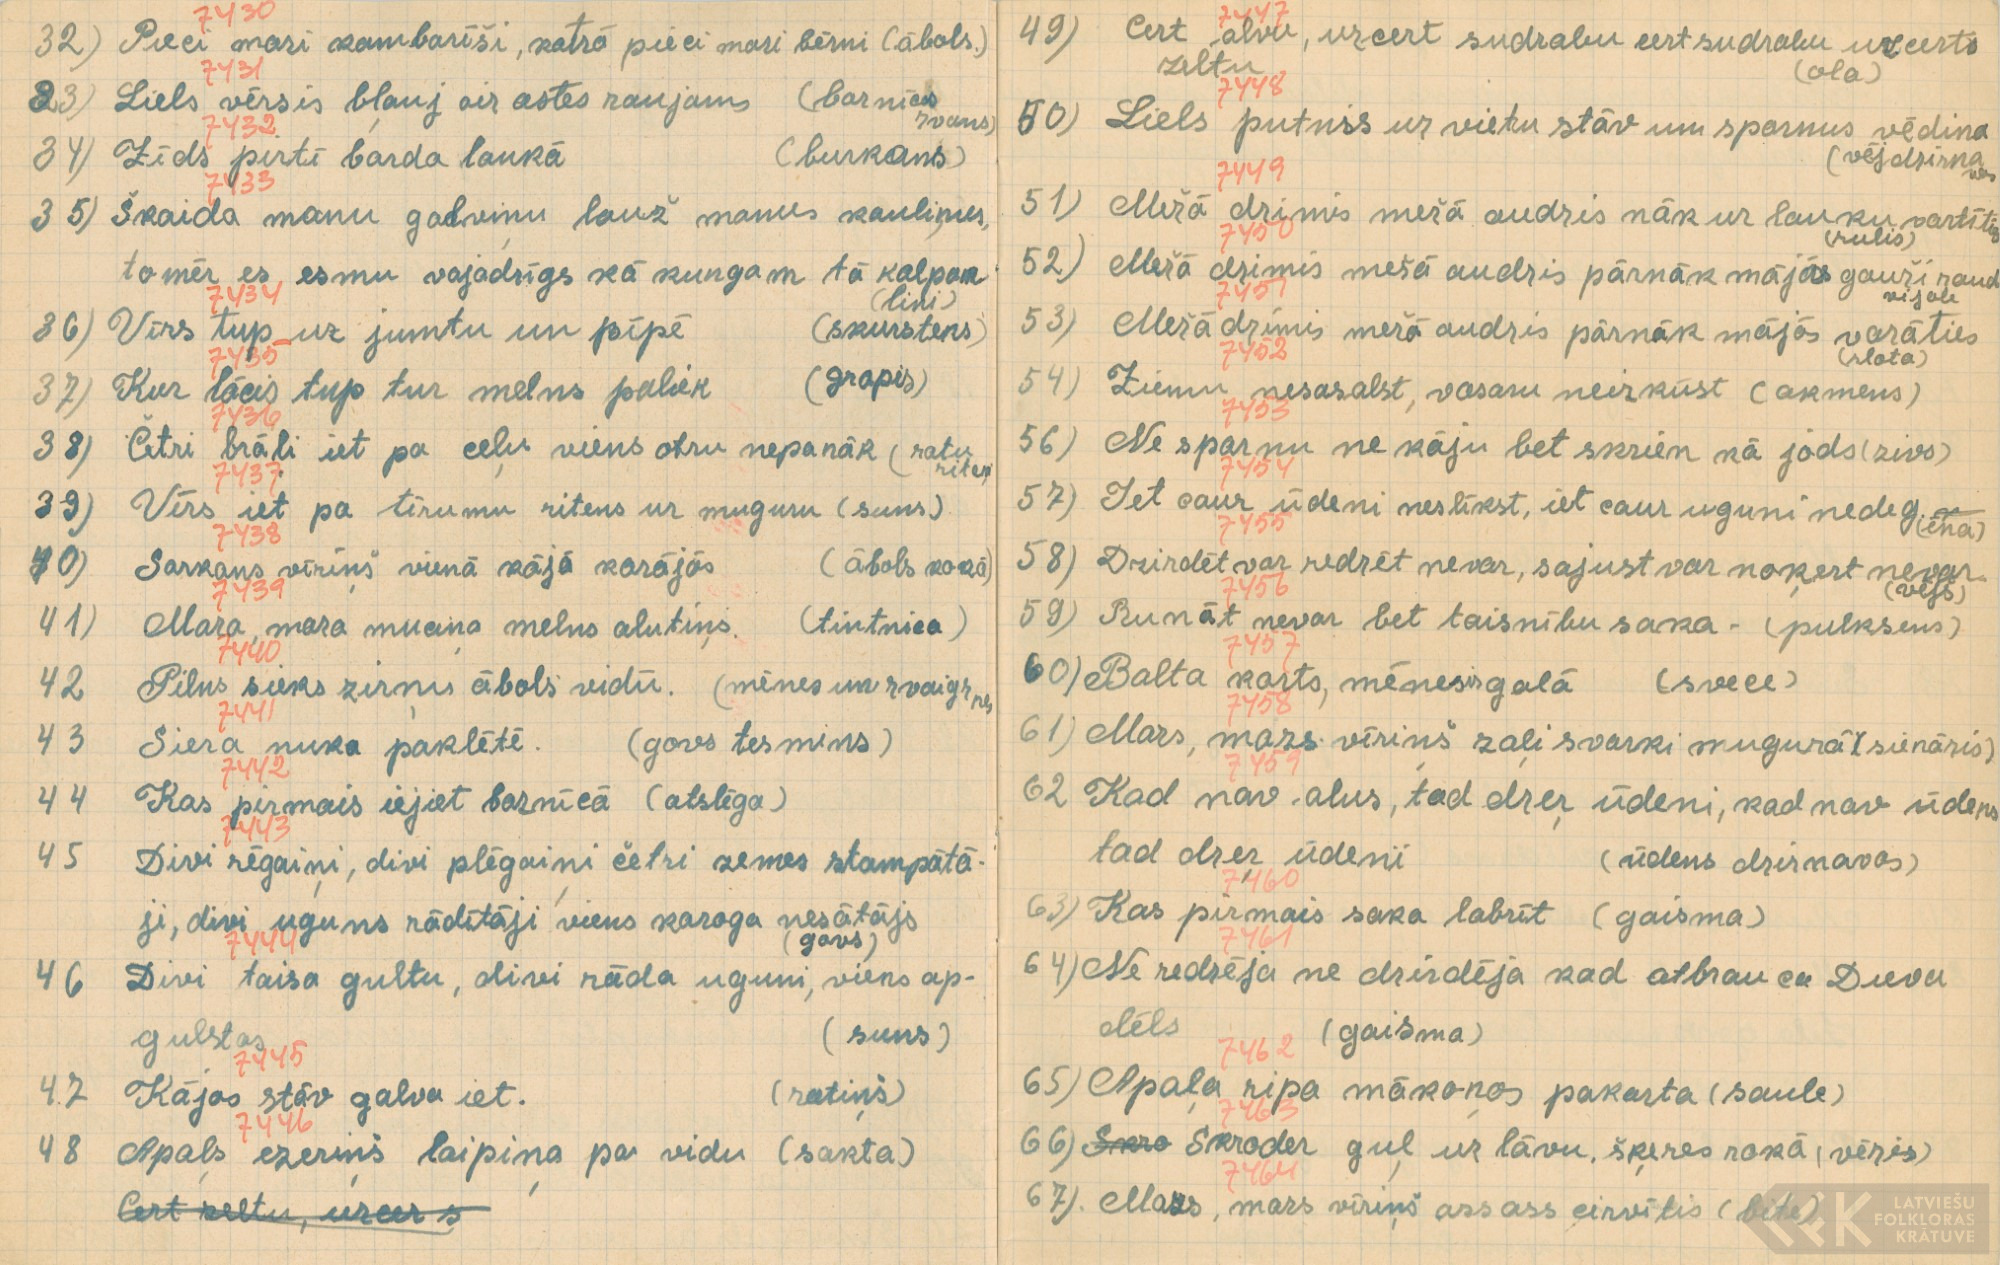 7430
32) Pieci mazi kambarīši, katrā pieci mazi bērni (ābols.)
7431
33) Liels vērsis bļauj aiz astes raujams (baznīcas zvans)
7432
34) Zīds pirtī barda laukā (burkans)
7433
35) Škaida manu galviņu lauž manus kauliņus,
tomēr es esmu vajadzīgs kā kungam tā kalpam
(lini)
7434
36) Vīrs tup uz jumtu un pīpē (skurstens)
7435
37) Kur lācis tup tur melns paliek (grapis)
7436
38) Četri brāļi iet pa ceļu viens otru nepanāk (ratu riteņi
7437
39) Vīrs iet pa tīrumu ritens uz muguru (suns)
7438
40) Sarkans vīriņš vienā kājā karājās (ābols kokā)
7439
41) Maza, maza muciņa melns alutiņš. (tintnica)
7440
42 Pilns sieks zirņu ābols vidū. (mēnes un zvaigznes
7441
43 Siera nuka paklētē. (govs tesmins)
7442
44 Kas pirmais iejiet baznīcā (atslēga)
7443
45 Divi rēgaiņi, divi plēgaiņi četri zemes stampātā-
ji, divi uguns rādītāji viens karoga nesātājs
(govs)
7444
46 Divi taisa gultu, divi rāda uguni, viens ap-
gulstas (suns)
7445
47 Kājas stāv galva iet. (ratiņš)
7446
48 Apaļs ezeriņš laipiņa pa vidu (sakta)
Cert zeltu, uzcer s
7447
49) Cert alvu, uzcert sudrabu cert sudrabu uzcerts
zeltu (ola)
7448
50) Liels putniss uz vietu stāv un sparnus vēdina
(vējdzirnavas
7449
51) Mežā dzimis mežā audzis nāk uz lauku vartīties
(rulis)
7450
52) Mežā dzimis mežā audzis pārnāk mājās gauži raud
vijole
7451
53) Mežā dzimis mežā audzis pārnāk mājās varāties
(slota)
7452
54) Ziemu nesasalst, vasaru neizkūst (akmens)
7453
56) Ne sparnu ne kāju bet skrien kā jods (zivs)
7454
57) Iet caur ūdeni neslīkst, iet caur uguni nedeg.
(ēna)
7455
58) Dzirdēt var redzēt nevar, sajust var noķert nevar.
(vējš)
7456
59) Runāt nevar bet taisnību saka - (pulkstens)
7457
60) Balta karts, mēnesis galā (svece)
7458
61) Mazs, mazs vīriņš zaļi svarki mugurā (sienāzis)
7459
62 Kad nav alus, tad dzeŗ ūdeni, kad nav ūdens
tad dzeŗ ūdeni (ūdens dzirnavas)
7460
63) Kas pirmais saka labrīt (gaisma)
7461
64) Ne redzēja ne dzirdēja kad atbrauca Dieva
dēls (gaisma)
7462
65) Apaļa ripa mākoņos pakarta (saule)
7463
66) Skro Skroder guļ uz lāvu, šķeres rokā (vēzis)
7464
67). Mazs, mazs vīriņš ass ass cirvītis (bite)
LATVIEŠU
FOLKLORAS
KRĀTUVE